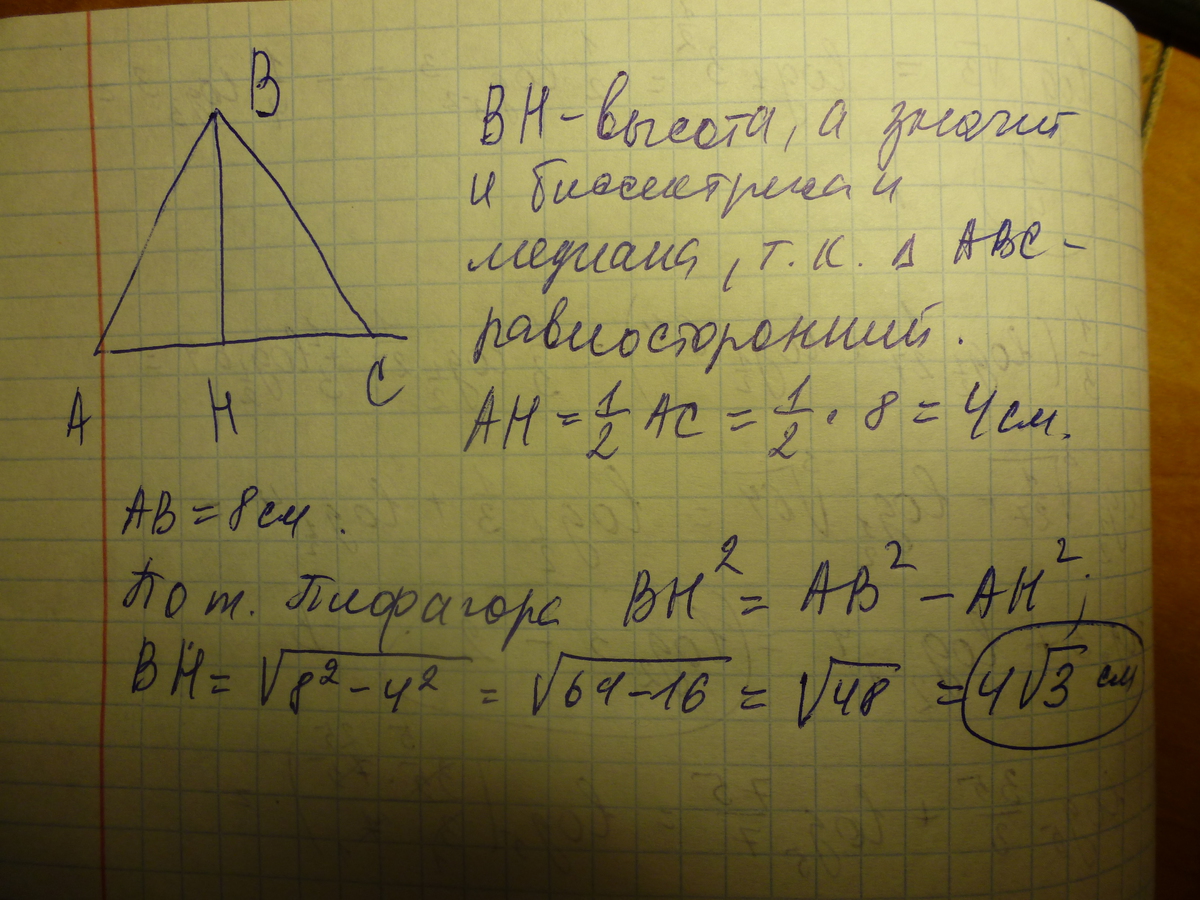 B
BH - высота, а значит
и биссектриса и
медиана, т.к. Δ ABC -
равносторонний.
A H C
AH = 1/2 AC = 1/2 · 8 = 4 см.
AB = 8 см.
По т. Пифагора BH² = AB² - AH²;
BH = √(8² - 4²) = √(64 - 16) = √48 = 4√3 см